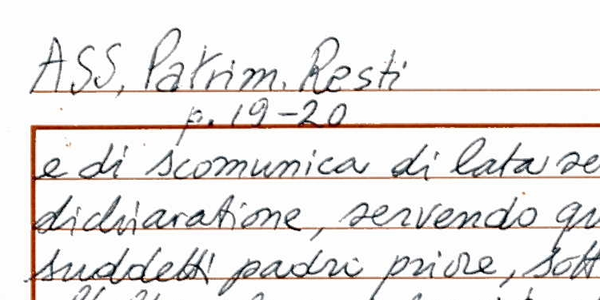 ASS, Patrim. Resti
p. 19-20
e di scomunica di lata se
dichiaratione, servendo qu
suddetti padri priore, sott